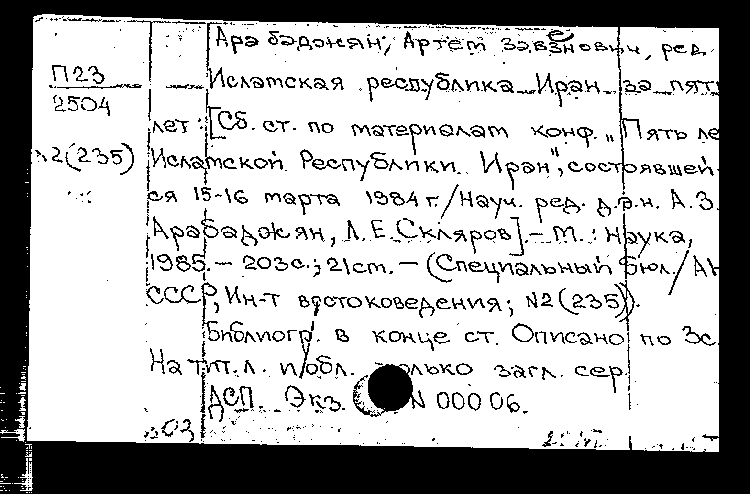 Арабаджян, Артем Завенович, ред.
П23
2504
Исламская республика Иран за пять
лет: [Сб. ст. по материалам конф. „Пять ле
№2(235)
Исламской Республики Иран", состоявшей-
ся 15-16 марта 1984 г. / Науч. ред. д.э.н. А.З.
Арабаджян, Л.Е. Скляров]. – М.: Наука,
1985. – 203с.; 21см. – (Специальный бюл. / АН
СССР, Ин-т востоковедения; №2(235)).
Библиогр. в конце ст. Описано по 3с.
На тит. л. и обл. только загл. сер.
ДСП. Экз. N 00006.